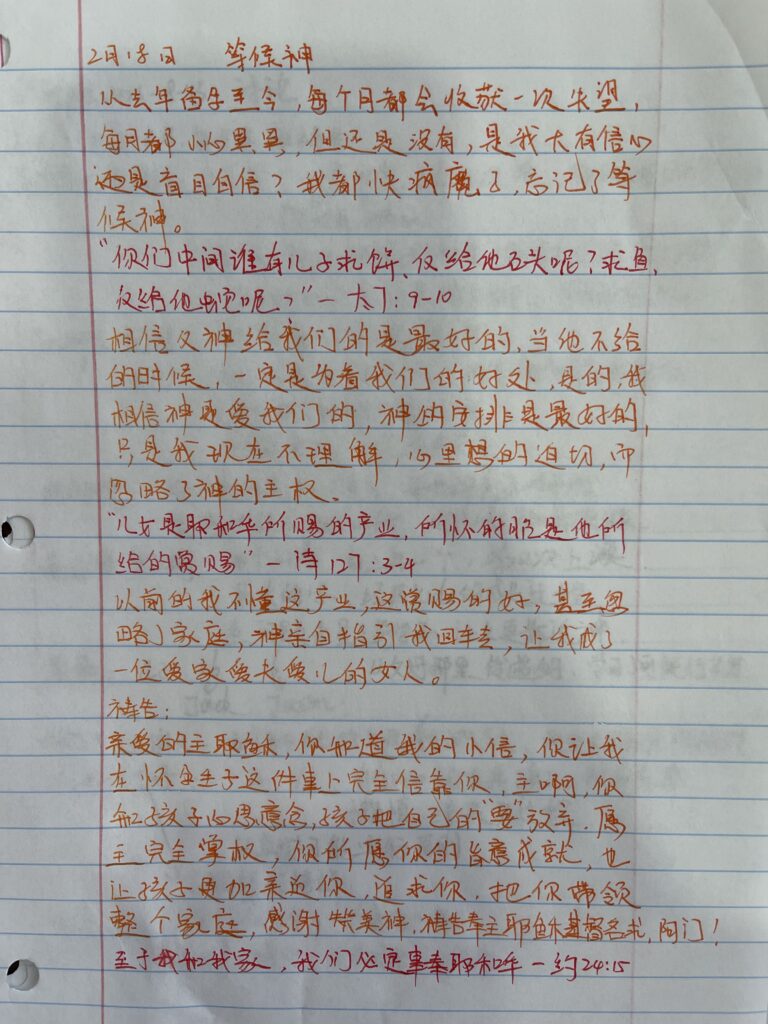 2月18日 等候神
从去年备孕至今,每个月都会收获一次失望,
每月都小心翼翼,但还是没有,是我太有信心
还是盲目自信?我都快疯魔了,忘记了等
候神。
"你们中间谁有儿子求饼、反给他石头呢?求鱼,
反给他蛇呢?"—太7:9-10
相信父神给我们的是最好的,当他不给
的时候,一定是为着我们的好处,是的,我
相信神是爱我们的,神的安排是最好的,
只是我现在不理解,心里想的迫切,而
忽略了神的主权。
"儿女是耶和华所赐的产业,所怀的胎是他所
给的赏赐"—诗127:3-4
以前的我不懂这产业,这赏赐的好,甚至忽
略了家庭,神亲自指引我回转,让我成了
一位爱家爱夫爱儿的女人。
祷告:
亲爱的主耶稣,你知道我的小信,你让我
在怀孕生子这件事上完全信靠你,主啊,你
知孩子心思意念,孩子把自己的"要"放弃.愿
主完全掌权,你所愿你的旨意成就,也
让孩子更加亲近你,追求你.把你带领
整个家庭,感谢赞美神.祷告奉主耶稣基督名求,阿门!
至于我和我家,我们必定事奉耶和华—约24:15